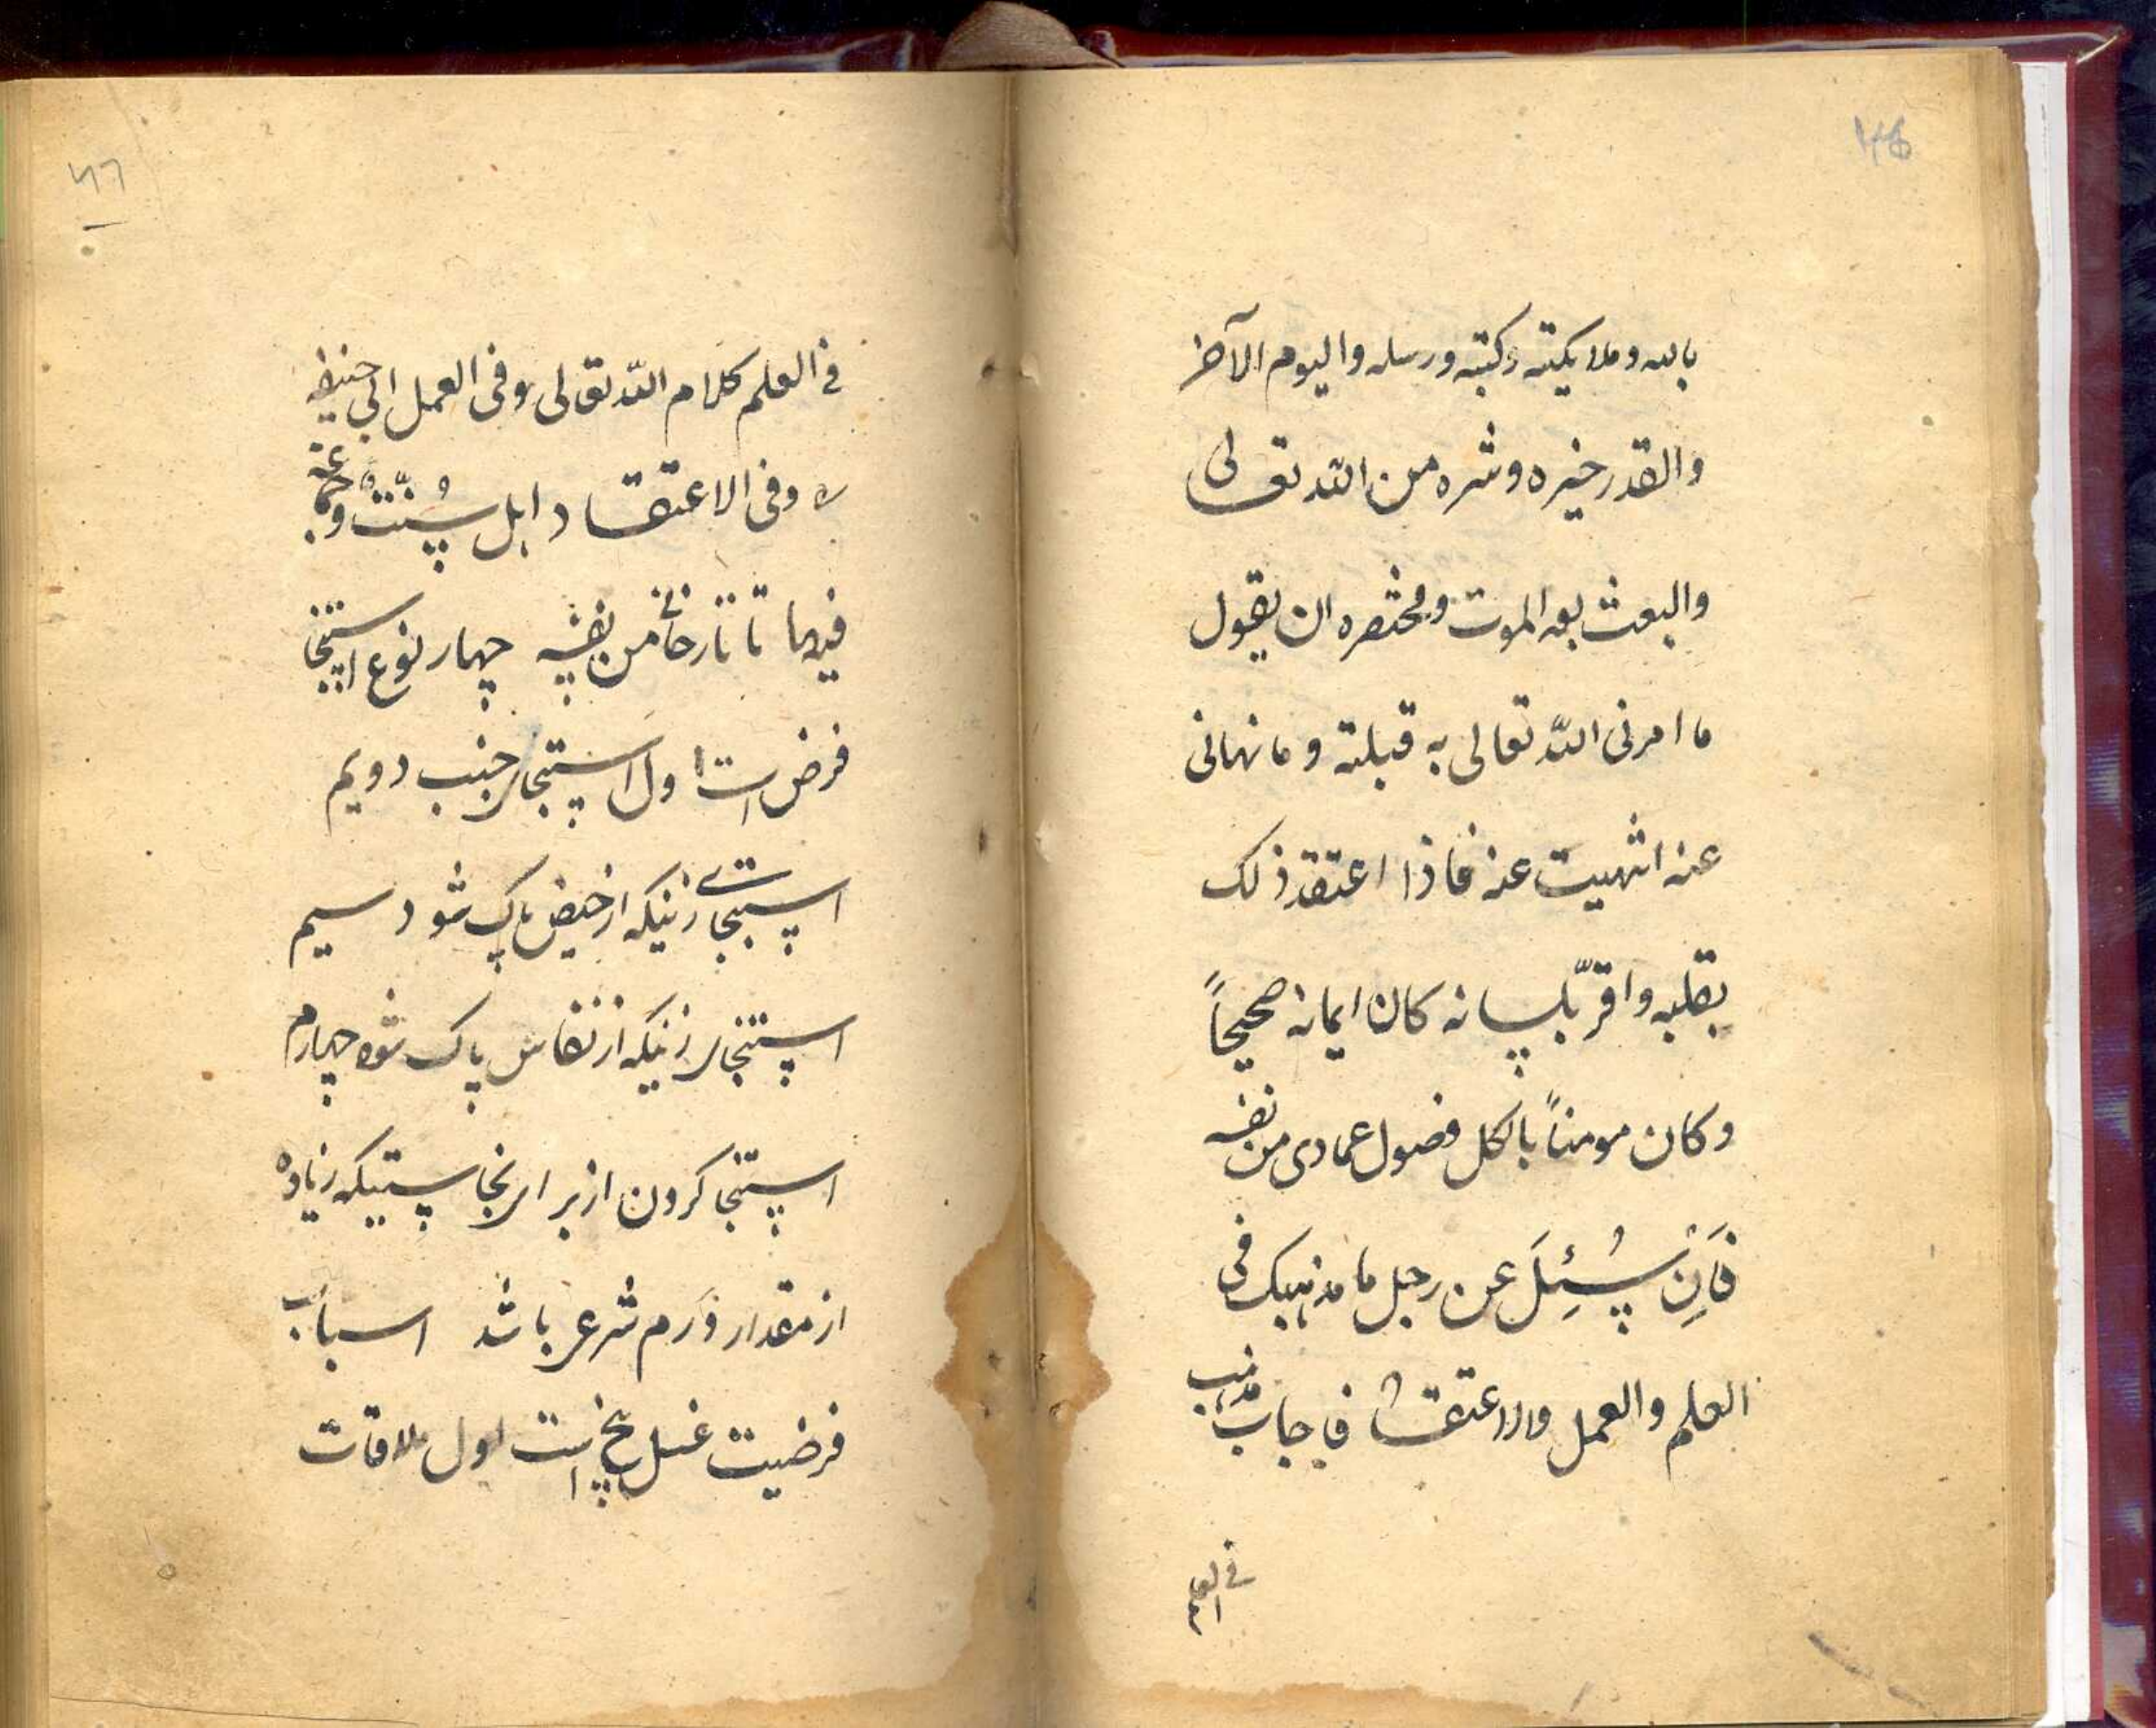 بالله وملایکته وکتبه ورسله والیوم الآخر
والقدر خیره وشره من الله تعالی
والبعث بعد الموت ومختصره ان یقول
ما امرنی الله تعالی به قبلته وما نهانی
عنه انتهیت عنه فاذا اعتقد ذلک
بقلبه واقرّ بلسانه کان ایمانه صحیحاً
وکان مومناً بالکل فصول عمادی من نفسه
فَاِنْ سُئِلَ عن رجل ما مذهبک فی
العلم والعمل والاعتقاد فاجاب مذهب
فی العلم
في العلم کلام الله تعالی وفی العمل ابی حنیفه
وفی الاعتقاد اهل سُنّتْ وجماعه
فیها تاتارخانی من نفسه چهار نوع استنجا
فرض است اول استنجای جنب دویم
استنجای زنیکه از حیض پاک شود سیم
استنجای زنیکه از نفاس پاک شود چهارم
استنجا کردن از برای نجاستیکه زیاده
از مقدار درم شرعی باشد اسباب
فرضیت غسل پنج است اول ملاقات